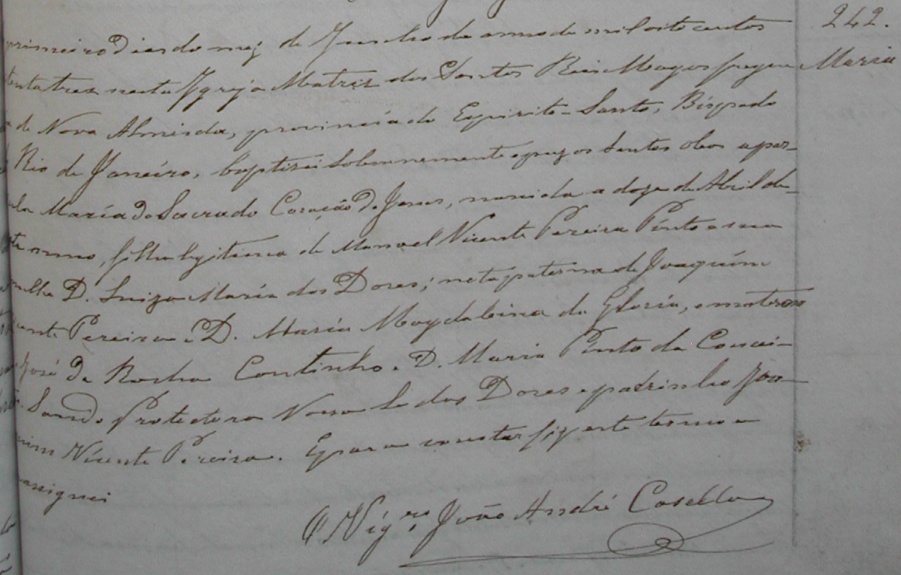 242.
Maria
primeiro dia do mez de Junho do anno de mil oito centos
tenta tres nesta Igreja Matriz dos Santos Reis Magos freguesia
de Nova Almeida, provincia do Espirito-Santo, Bispado
Rio de Janeiro, baptisei solemnemente e puz os santos oleos a par-
ula Maria do Sacrado Coração de Jesus, nascida a doze de Abril de-
te anno, filha legitima de Manoel Vicente Pereira Pinto e sua
mulher D. Luiza Maria das Dores; neta paterna de Joaquim
cente Pereira e D. Maria Magdalena da Gloria, e materna
José da Rocha Coutinho e D. Maria Pinto da Concei-
Sendo Protectora Nossa Sa das Dores e padrinho Joa-
quim Vicente Pereira. E para constar fiz este termo e
assignei
O Vigro João André Casella